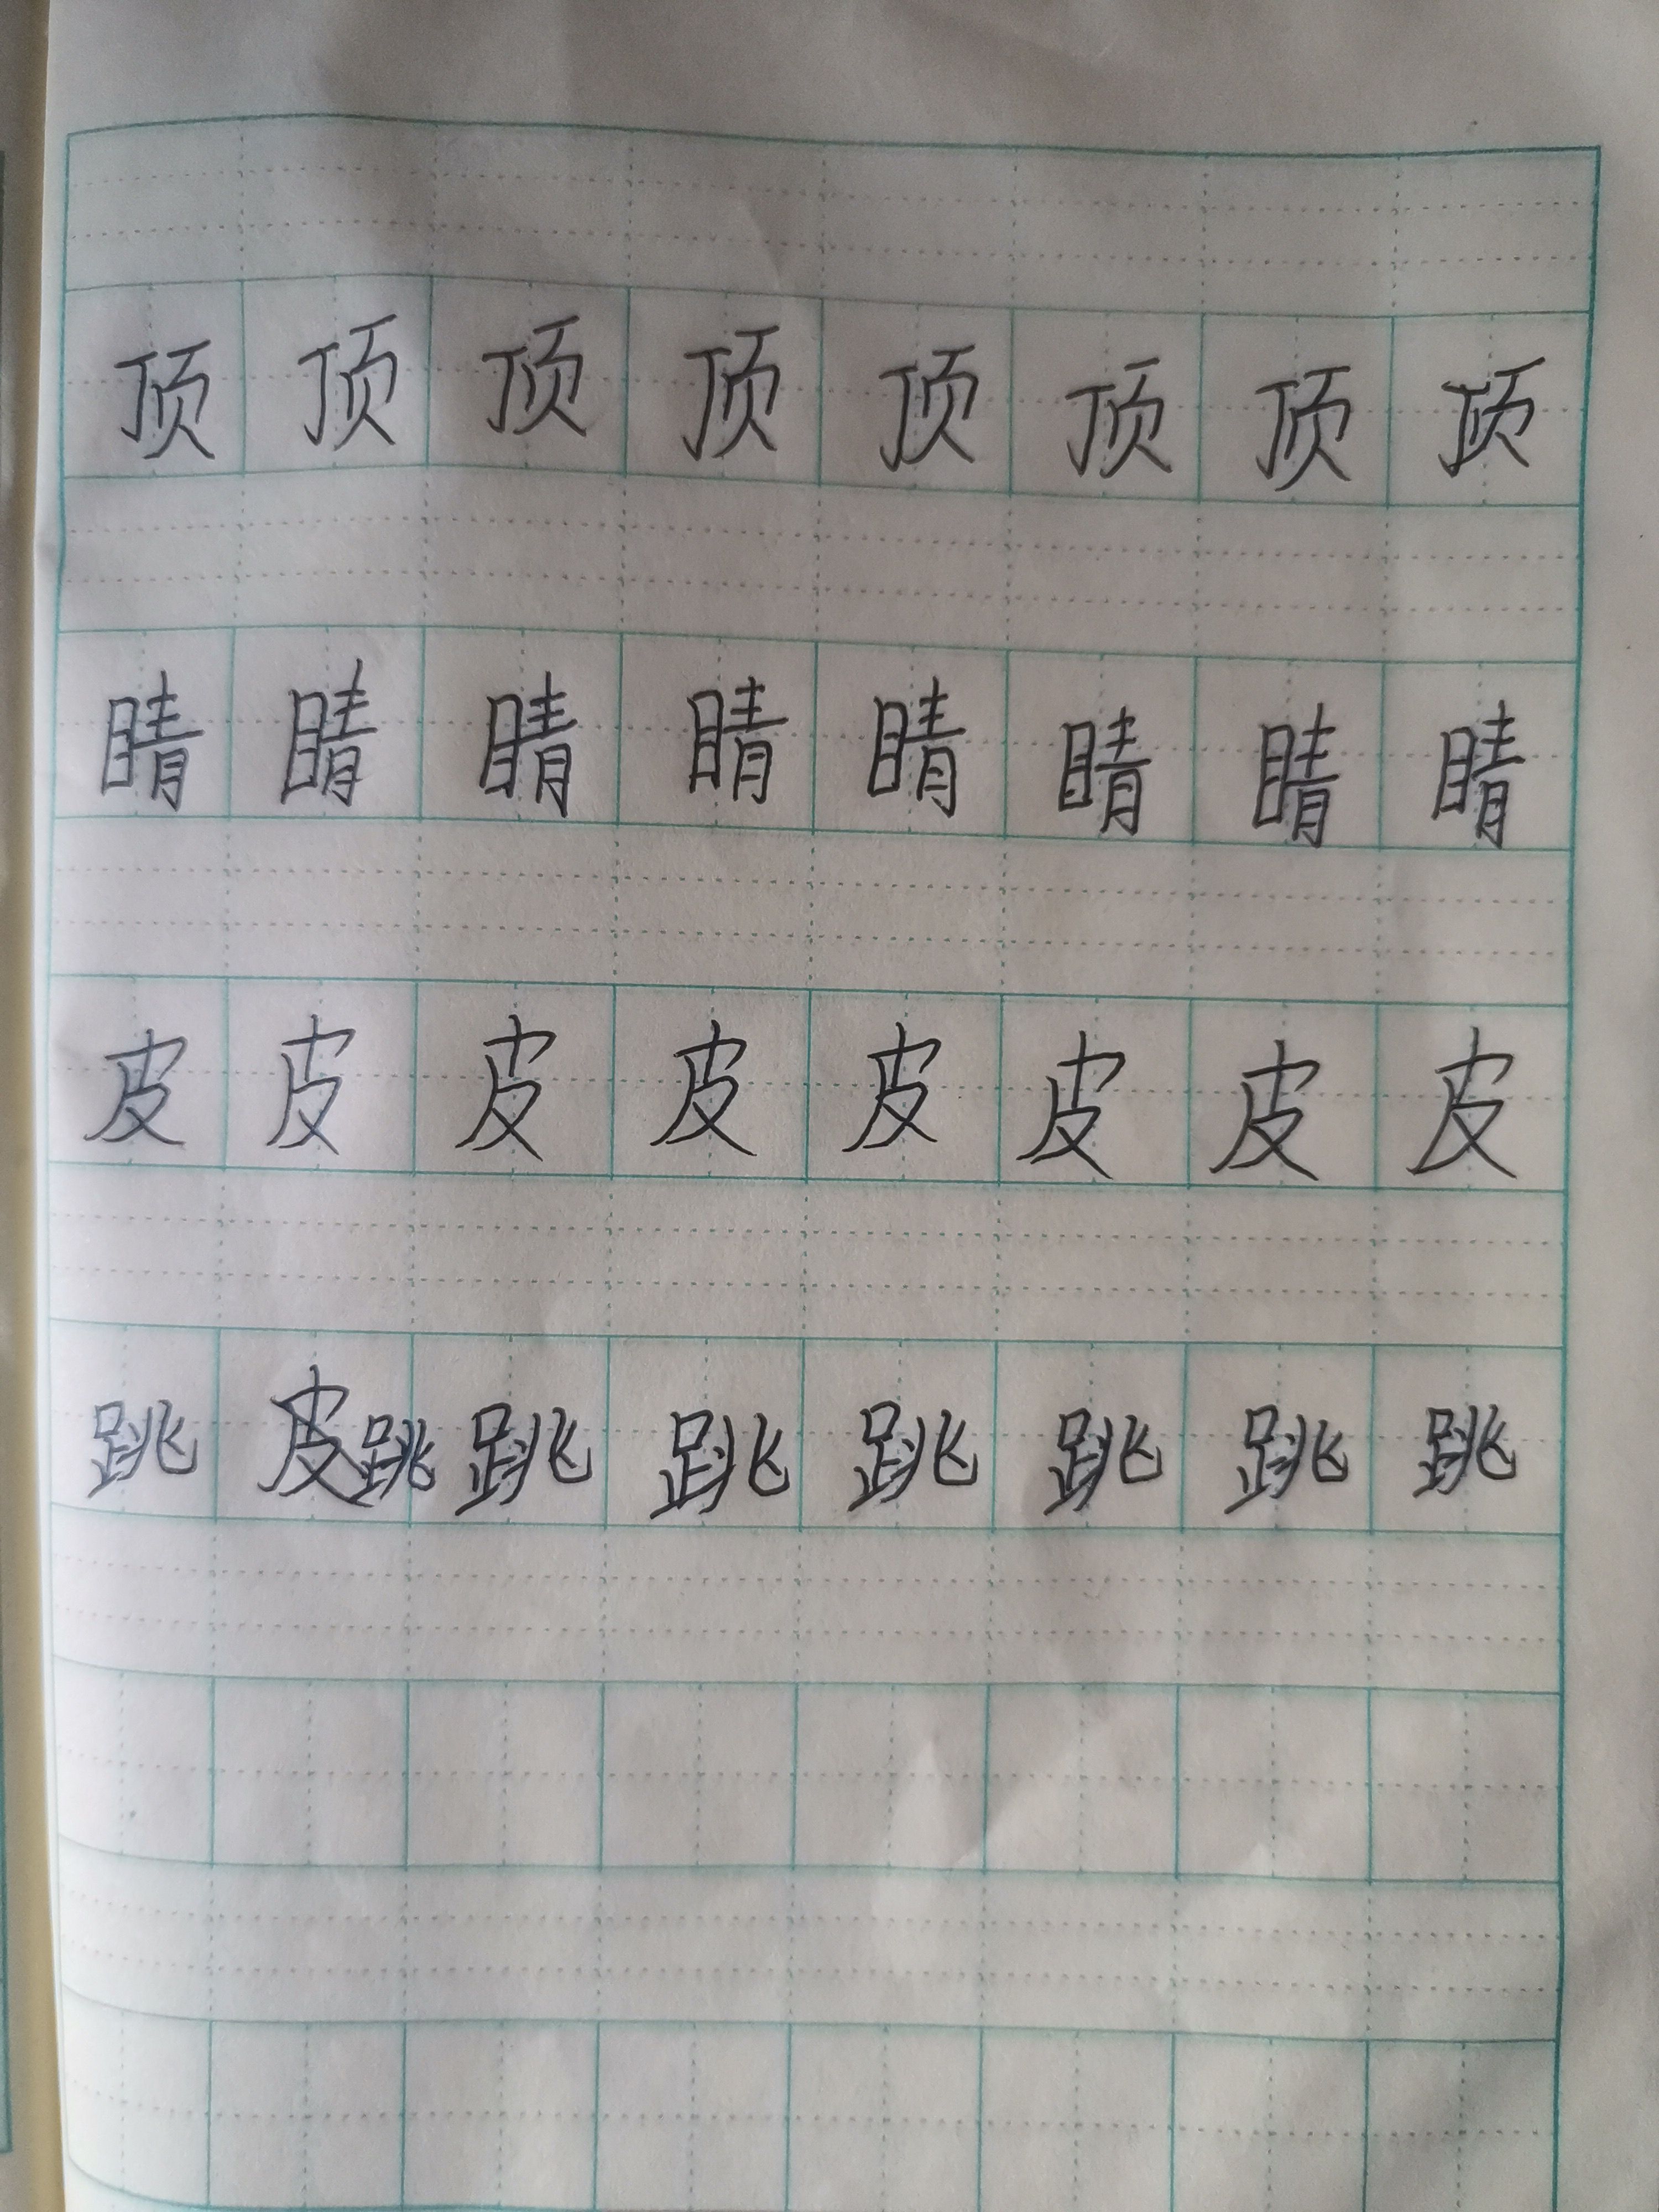 顶顶顶顶顶顶顶顶
睛睛睛睛睛睛睛睛
皮皮皮皮皮皮皮皮
跳皮跳跳跳跳跳跳跳